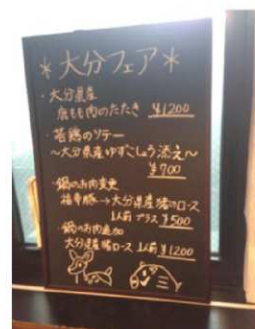 *大分フェア*
・大分県産
鹿もも肉のたたき ¥1200
・若鶏のソテー
〜大分県産ゆずごしょう添え〜
¥700
・鍋のお肉変更
福幸豚→大分県産猪ロース
1人前 プラス ¥500
・鍋のお肉追加
大分県産猪ロース 1人前 ¥1200